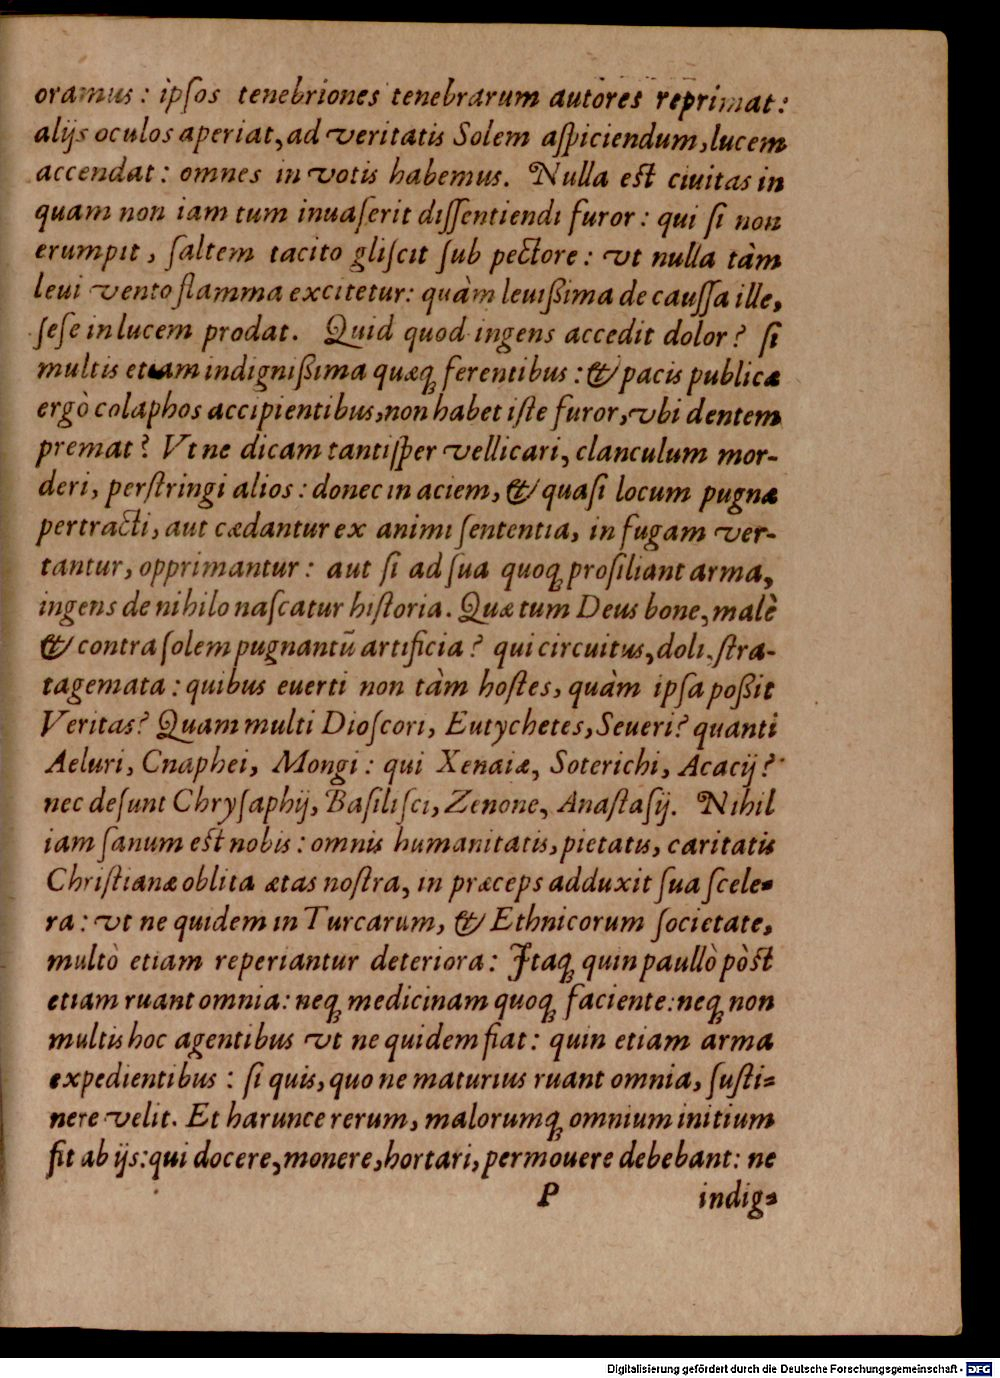 oramus: ipſos tenebriones tenebrarum autores reprimat:
alijs oculos aperiat, ad veritatis Solem aſpiciendum, lucem
accendat: omnes in votis habemus. Nulla eſt ciuitas in
quam non iam tum inuaſerit diſſentiendi furor: qui ſi non
erumpit, ſaltem tacito gliſcit ſub pectore: vt nulla tàm
leui vento flamma excitetur: quàm leuißima de cauſſa ille,
ſeſe in lucem prodat. Quid quod ingens accedit dolor? ſi
multis etiam indignißima quæq; ferentibus: & pacis publicæ
ergò colaphos accipientibus, non habet iſte furor, vbi dentem
premat? Vt ne dicam tantiſper vellicari, clanculum mor-
deri, perſtringi alios: donec in aciem, & quaſi locum pugnæ
pertracti, aut cædantur ex animi ſententia, in fugam ver-
tantur, opprimantur: aut ſi ad ſua quoq; proſiliant arma,
ingens de nihilo naſcatur hiſtoria. Quæ tum Deus bone, malè
& contra ſolem pugnantũ artificia? qui circuitus, doli, ſtra-
tagemata: quibus euerti non tàm hoſtes, quàm ipſa poßit
Veritas? Quam multi Dioſcori, Eutychetes, Seueri? quanti
Aeluri, Cnaphei, Mongi: qui Xenaiæ, Soterichi, Acacij?
nec deſunt Chryſaphij, Baſiliſci, Zenone, Anaſtaſij. Nihil
iam ſanum eſt nobis: omnis humanitatis, pietatis, caritatis
Chriſtianæ oblita ætas noſtra, in præceps adduxit ſua ſcele-
ra: vt ne quidem in Turcarum, & Ethnicorum ſocietate,
multò etiam reperiantur deteriora: Itaq; quin paullò pòſt
etiam ruant omnia: neq; medicinam quoq; faciente: neq; non
multis hoc agentibus vt ne quidem fiat: quin etiam arma
expedientibus: ſi quis, quo ne maturius ruant omnia, ſuſti-
nere velit. Et harunce rerum, malorumq; omnium initium
fit ab ijs: qui docere, monere, hortari, permouere debebant: ne
P indig-
Digitalisierung gefördert durch die Deutsche Forschungsgemeinschaft - DFG